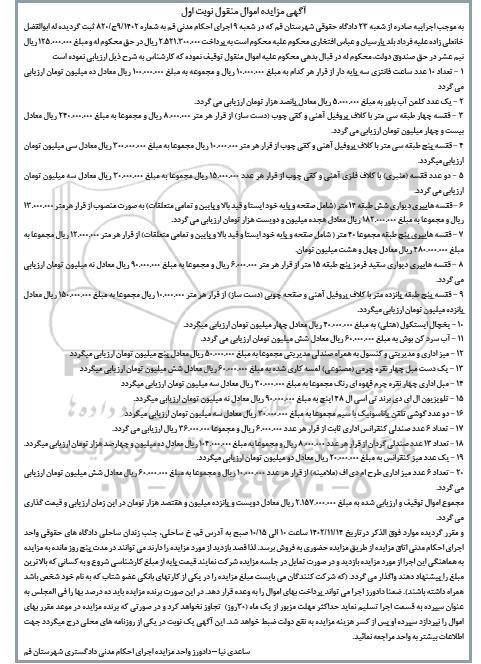 آگهی مزایده اموال منقول نوبت اول
به موجب اجراییه صادره از شعبه ۲۳ دادگاه حقوقی شهرستان قم که در شعبه ۹ اجرای احکام مدنی قم به شماره ۹/۱۴۰۲ج/۸۲۰ ثبت گردیده له ابوالفضل
خانعلی زاده علیه فرداد بلند پارسیان و عباس افتخاری محکوم علیه محکوم است به پرداخت ۲.۵۲۱.۳۰۰.۰۰۰ ریال در حق محکوم له و مبلغ ۱۲۵.۰۰۰.۰۰۰ ریال
نیم عشر در حق صندوق دولت، محکوم له در قبال بدهی محکوم علیه اموال منقول توقیف نموده که کارشناس به شرح ذیل ارزیابی نموده است
۱ – تعداد ۱۰ عدد ساعت فانتزی سه پایه دار از قرار هر کدام به مبلغ ۱۰.۰۰۰.۰۰۰ ریال و مجموعه به مبلغ ۱۰۰.۰۰۰.۰۰۰ ریال معادل ده میلیون تومان ارزیابی
می گردد
۲ – یک عدد کلمن آب بلور به مبلغ ۵.۰۰۰.۰۰۰ ریال معادل پانصد هزار تومان ارزیابی می گردد.
۳ – قفسه چهار طبقه سی متر با کلاف پروفیل آهنی و کفی چوب (دست ساز) از قرار هر متر ۸.۰۰۰.۰۰۰ ریال و مجموعا به مبلغ ۲۴۰.۰۰۰.۰۰۰ ریال معادل
بیست و چهار میلیون تومان ارزیابی می گردد.
۴ – قفسه پنج طبقه سی متر با کلاف پروفیل آهنی و کفی چوب از قرار هر متر ۱۰.۰۰۰.۰۰۰ ریال مجموعا به مبلغ ۳۰۰.۰۰۰.۰۰۰ ریال معادل سی میلیون تومان
ارزیابی میگردد.
۵ – دو عدد قفسه (منبری) با کلاف فلزی آهنی و کفی چوب از قرار هر عدد ۱۵.۰۰۰.۰۰۰ ریال مجموعا به مبلغ ۳۰.۰۰۰.۰۰۰ ریال معادل سه میلیون تومان
ارزیابی می گردد.
۶ – قفسه هایپری دیواری شش طبقه ۱۴ متر (شامل صفحه و پایه خود ایستا و قید بالا و پایین و تمامی متعلقات) به صورت منصوب از قرار هر متر ۱۳.۰۰۰.۰۰۰
ریال و مجموعا به مبلغ ۱۸۲.۰۰۰.۰۰۰ ریال معادل هجده میلیون و دویست هزار تومان ارزیابی می گردد.
۷ – قفسه هایپری پنج طبقه مجموعا ۴۰ متر (شامل صفحه و پایه خود ایستا و قید بالا و پایین و تمامی متعلقات) از قرار هر متر ۱۲.۰۰۰.۰۰۰ ریال مجموعا به
مبلغ ۴۸۰.۰۰۰.۰۰۰ ریال معادل چهل و هشت میلیون تومان.
۸ – قفسه هایپری دیواری سفید قرمز پنج طبقه ۱۵ متر از قرار هر متر ۶.۰۰۰.۰۰۰ ریال و مجموعا به مبلغ ۹۰.۰۰۰.۰۰۰ ریال معادل نه میلیون تومان ارزیابی
می گردد.
۹ – قفسه پنج طبقه پانزده متر با کلاف پروفیل آهنی و صفحه چوبی (دست ساز) از قرار هر متر ۱۰.۰۰۰.۰۰۰ ریال مجموعا به مبلغ ۱۵۰.۰۰۰.۰۰۰ ریال معادل
پانزده میلیون تومان ارزیابی میگردد.
۱۰ – یخچال ایستکول (هتلی) به مبلغ ۴۰.۰۰۰.۰۰۰ ریال معادل چهار میلیون تومان ارزیابی میگردد.
۱۱ – آب سرد کن بوش به مبلغ ۶۰.۰۰۰.۰۰۰ ریال معادل شش میلیون تومان ارزیابی می گردد.
۱۲ – میز اداری و مدیریتی و کنسول به همراه صندلی مدیریتی مجموعا به مبلغ ۵۰.۰۰۰.۰۰۰ ریال معادل پنج میلیون تومان ارزیابی میگردد
۱۳ – یک دست مبل چهار نفره چرمی (مصنوعی) لمسه کاری شده به مبلغ ۶۰.۰۰۰.۰۰۰ ریال معادل شش میلیون تومان ارزیابی میگردد
۱۴ – مبل اداری چهار نفره چرم قهوه ای رنگ مجموعا به مبلغ ۳۰.۰۰۰.۰۰۰ ریال معادل سه میلیون تومان ارزیابی میگردد
۱۵ – تلویزیون ال ای دی برند تی اسی ال ۴۸ اینچ به مبلغ ۹۰.۰۰۰.۰۰۰ ریال معادل نه میلیون تومان ارزیابی میگردد.
۱۶ – دو عدد گوشی تلفن پاناسونیک با سیم مجموعا به مبلغ ۳۰.۰۰۰.۰۰۰ ریال معادل سه میلیون تومان ارزیابی میگردد.
۱۷ – تعداد ۶ عدد صندلی کنفرانس اداری ثابت از قرار هر عدد ۶.۰۰۰.۰۰۰ ریال و مجموعا ۳۶.۰۰۰.۰۰۰ ریال ارزیابی می گردد.
۱۸ – تعداد ۱۳ عدد صندلی گردان از قرار هر عدد ۸.۰۰۰.۰۰۰ ریال و مجموعا به مبلغ ۱۰۴.۰۰۰.۰۰۰ ریال معادل ده میلیون و چهارصد هزار تومان ارزیابی میگردد.
۱۹ – یک عدد میز کنفرانس به مبلغ ۲۰.۰۰۰.۰۰۰ ریال معادل دو میلیون تومان ارزیابی میگردد.
۲۰ – تعداد ۶ عدد میز اداری طرح ام دی اف (ملامینه) از قرار هر عدد ۱۰.۰۰۰.۰۰۰ ریال و مجموعا به مبلغ ۶۰.۰۰۰.۰۰۰ ریال معادل شش میلیون تومان ارزیابی
می گردد.
مجموع اموال توقیف و ارزیابی شده به مبلغ ۲.۱۵۷.۰۰۰.۰۰۰ ریال معادل دویست و پانزده میلیون و هفتصد هزار تومان در این زمان ارزیابی و قیمت گذاری
می گردد.
و مقرر گردیده موارد فوق الذکر در تاریخ ۱۴۰۲/۱۱/۱۴ ساعت ۱۰ الی ۱۰/۱۵ صبح به آدرس قم، خ ساحلی، جنب زندان ساحلی دادگاه های حقوقی واحد
اجرای احکام مدنی اتاق مزایده از طریق مزایده حضوری به فروش برسد. لذا قصد بازدید از مورد مزایده را دارند می توانند در مدت پنج روز مانده به مزایده
به هماهنگی این اجرا از مورد مزایده بازدید و در صورت تمایل در جلسه مزایده شرکت نمایند قیمت پایه از مبلغ کارشناسی شروع و به کسانی که بالاترین
مبلغ را پیشنهاد دهند واگذار می گردد. (که شرکت کنندگان می بایست مبلغ مزایده را در یکی از کارتهای بانکی عضو شتاب که به نام خود شخص باشد
همراه داشته باشند). ضمنا دادورز اجرا می تواند پرداخت بهای اموال را به وعده قرار دهد. در این صورت برنده مزایده باید ده درصد بها را فی المجلس به
عنوان سپرده به قسمت اجرا تسلیم نماید حداکثر مهلت مزبور از یک ماه (۳۰روز) تجاوز نخواهد کرد و در صورتی که برنده مزایده در موعد مقرر بهای
اموال را نپردازد سپرده او پس از کسر هزینه مزایده به نفع دولت ضبط خواهد شد. این آگهی یک نوبت در یکی از روزنامه های محلی درج میگردد جهت
اطلاعات بیشتر به واحد مراجعه نمائید.
ساعدی نیا – دادورز واحد مزایده اجرای احکام مدنی دادگستری شهرستان قم
۰۲۱-۸۸۳۴۹۶۷۰-۵